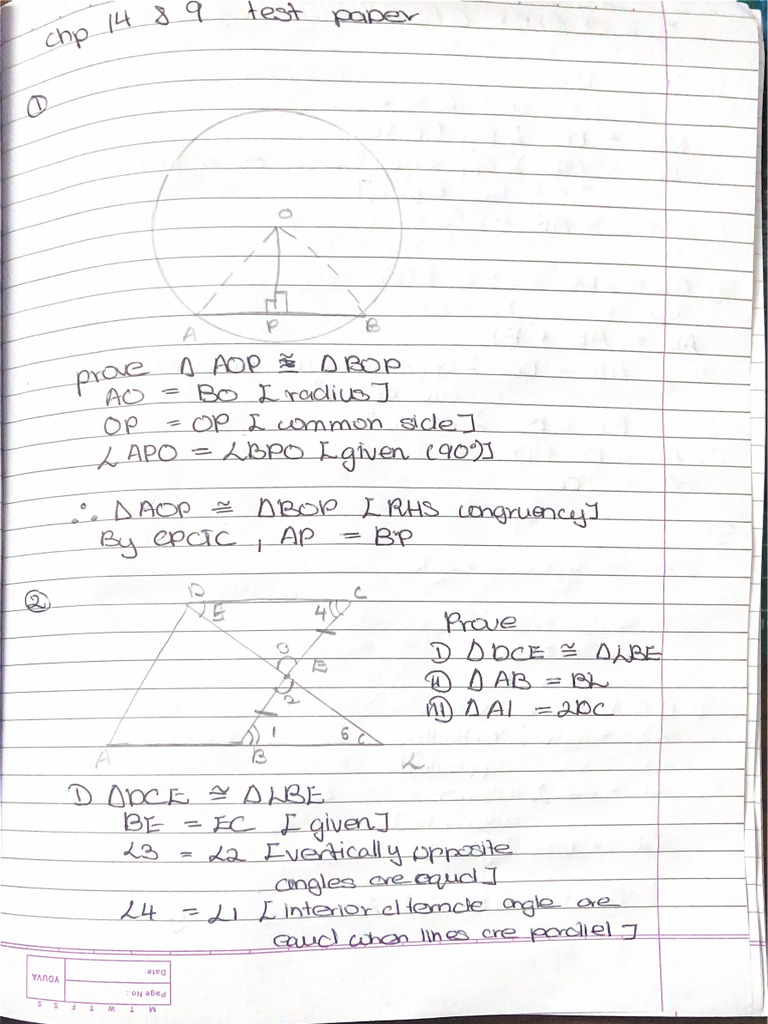 chp 14 & 9 test paper
①
O
A P B
prove Δ AOP ≅ ΔBOP
AO = BO [radius]
OP = OP [common side]
∠APO = ∠BPO [given (90°)]
∴ ΔAOP ≅ ΔBOP [RHS congruency]
By CPCTC, AP = BP
②
D C
5 4
3 E
2
1 6
A B L
Prove
I) ΔDCE ≅ ΔLBE
II) Δ AB = BL
III) Δ Al = 2DC
I) ΔDCE ≅ ΔLBE
BE = EC [given]
∠3 = ∠2 [vertically opposite
angles are equal]
∠4 = ∠1 [interior alternate angle are
equal when lines are parallel]
YOUVA
Date:
Page No.:
M T W T F S S